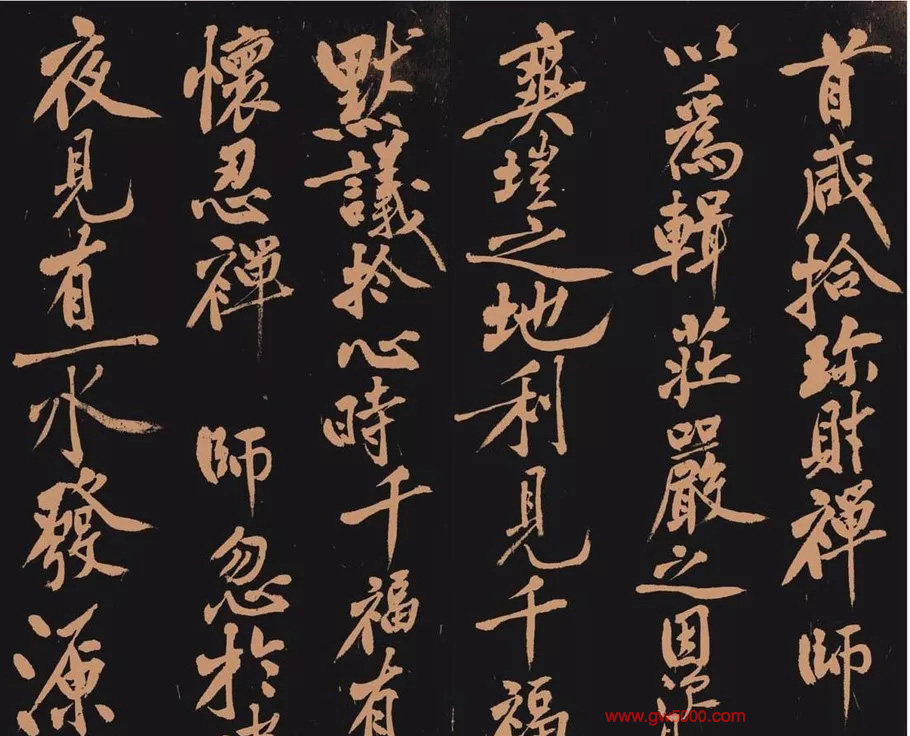 首咸拾珎財禪師
以爲輯莊嚴之因
爽塏之地利見千福
默議於心時千福有
懷忍禪師忽於
夜見有一水發源
www.gw5000.com